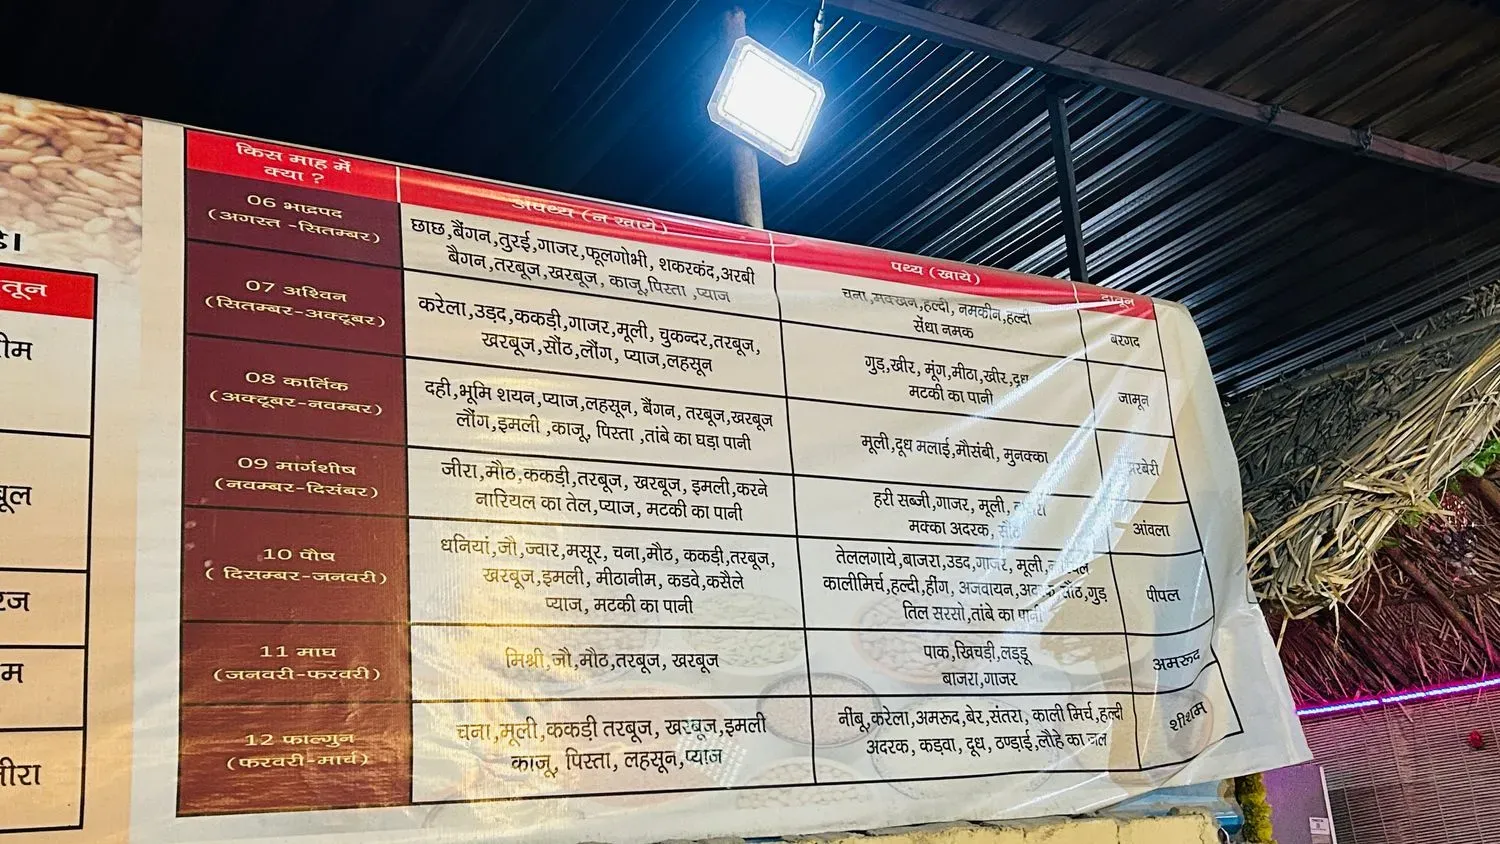 है।
तून
ीम
ूल
रज
म
ीरा
किस माह में
क्या ?
अपथ्य (न खाये)
पथ्य (खाये)
दातून
06 भाद्रपद
(अगस्त -सितम्बर)
छाछ,बैंगन,तुरई,गाजर,फूलगोभी, शकरकंद,अरबी
बैगन,तरबूज,खरबूज, काजू,पिस्ता ,प्याज
चना,मक्खन,हल्दी, नमकीन,हल्दी
सेंधा नमक
बरगद
07 अश्विन
(सितम्बर-अक्टूबर)
करेला,उड़द,ककड़ी,गाजर,मूली, चुकन्दर,तरबूज,
खरबूज,सौंठ,लौंग, प्याज,लहसून
गुड़,खीर, मूंग,मीठा,खीर,दूध
मटकी का पानी
जामून
08 कार्तिक
(अक्टूबर-नवम्बर)
दही,भूमि शयन,प्याज,लहसून, बैंगन, तरबूज,खरबूज
लौंग,इमली ,काजू, पिस्ता ,तांबे का घड़ा पानी
मूली,दूध मलाई,मौसंबी, मुनक्का
09 मार्गशीष
(नवम्बर-दिसंबर)
जीरा,मौठ,ककड़ी,तरबूज, खरबूज, इमली,करने
नारियल का तेल,प्याज, मटकी का पानी
हरी सब्जी,गाजर, मूली,
मक्का अदरक, सौंठ
आंवला
10 पौष
( दिसम्बर-जनवरी)
धनियां,जौ,ज्वार,मसूर, चना,मौठ, ककड़ी,तरबूज,
खरबूज,इमली, मीठानीम, कडवे,कसैले
प्याज, मटकी का पानी
तेललगाये,बाजरा,उडद,गाजर, मूली,
कालीमिर्च,हल्दी,हींग, अजवायन, सौंठ,गुड़
तिल सरसो,तांबे का पानी
पीपल
11 माघ
(जनवरी-फरवरी)
मिश्री,जौ,मौठ,तरबूज, खरबूज
पाक,खिचड़ी,लड्डू
बाजरा,गाजर
अमरूद
12 फाल्गुन
(फरवरी-मार्च)
चना,मूली,ककड़ी तरबूज, खरबूज,इमली
काजू, पिस्ता, लहसून,प्याज
नींबू,करेला,अमरूद,बेर,संतरा, काली मिर्च,हल्दी
अदरक, कड़वा, दूध, ठण्ड़ाई,लौहे का जल
शीशम